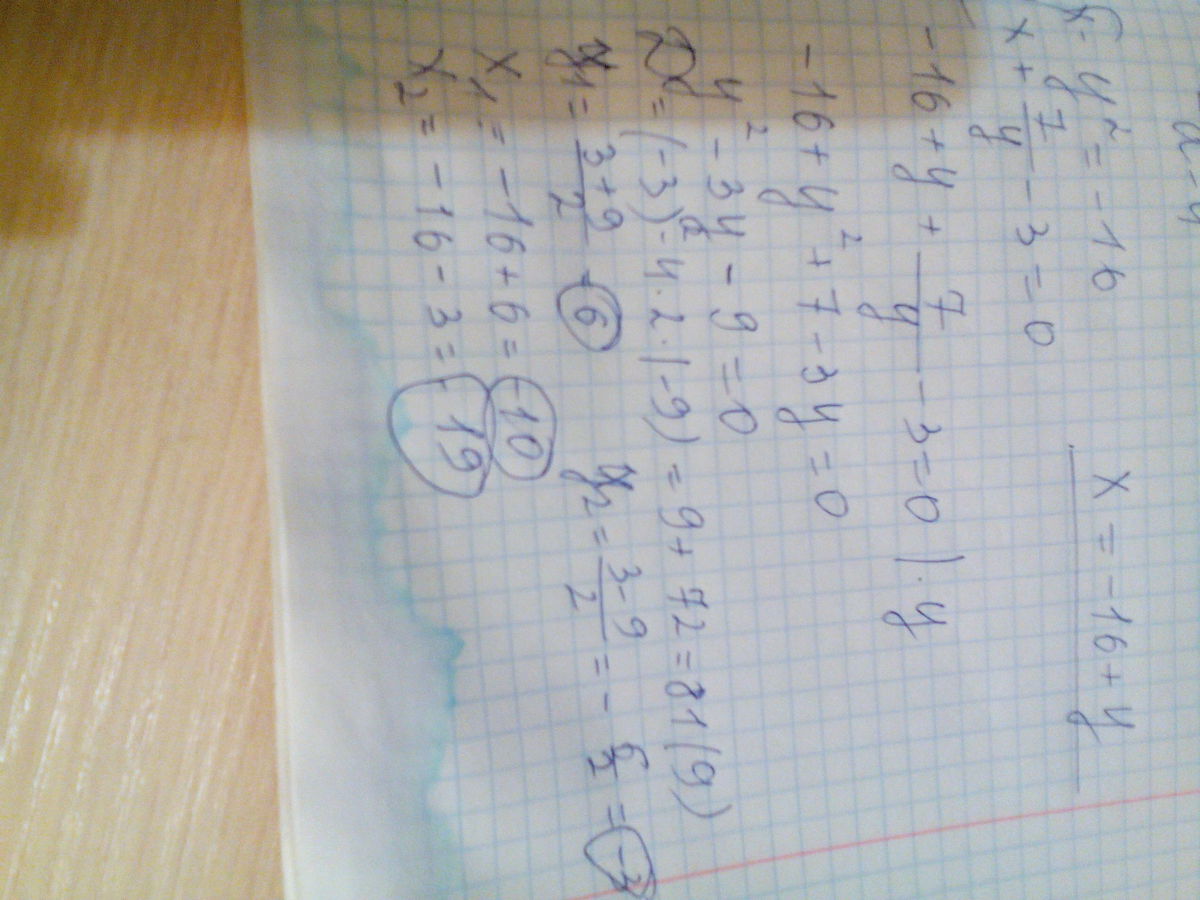 x - y² = -16    x = -16 + y
x + 7/y - 3 = 0
-16 + y + 7/y - 3 = 0 | · y
-16 + y² + 7 - 3y = 0
y² - 3y - 9 = 0
D = (-3)² - 4 · 2 · (-9) = 9 + 72 = 81 (9)
y1 = (3 + 9)/2 = 6    y2 = (3 - 9)/2 = - 6/2 = -3
x1 = -16 + 6 = -10
x2 = -16 - 3 = -19